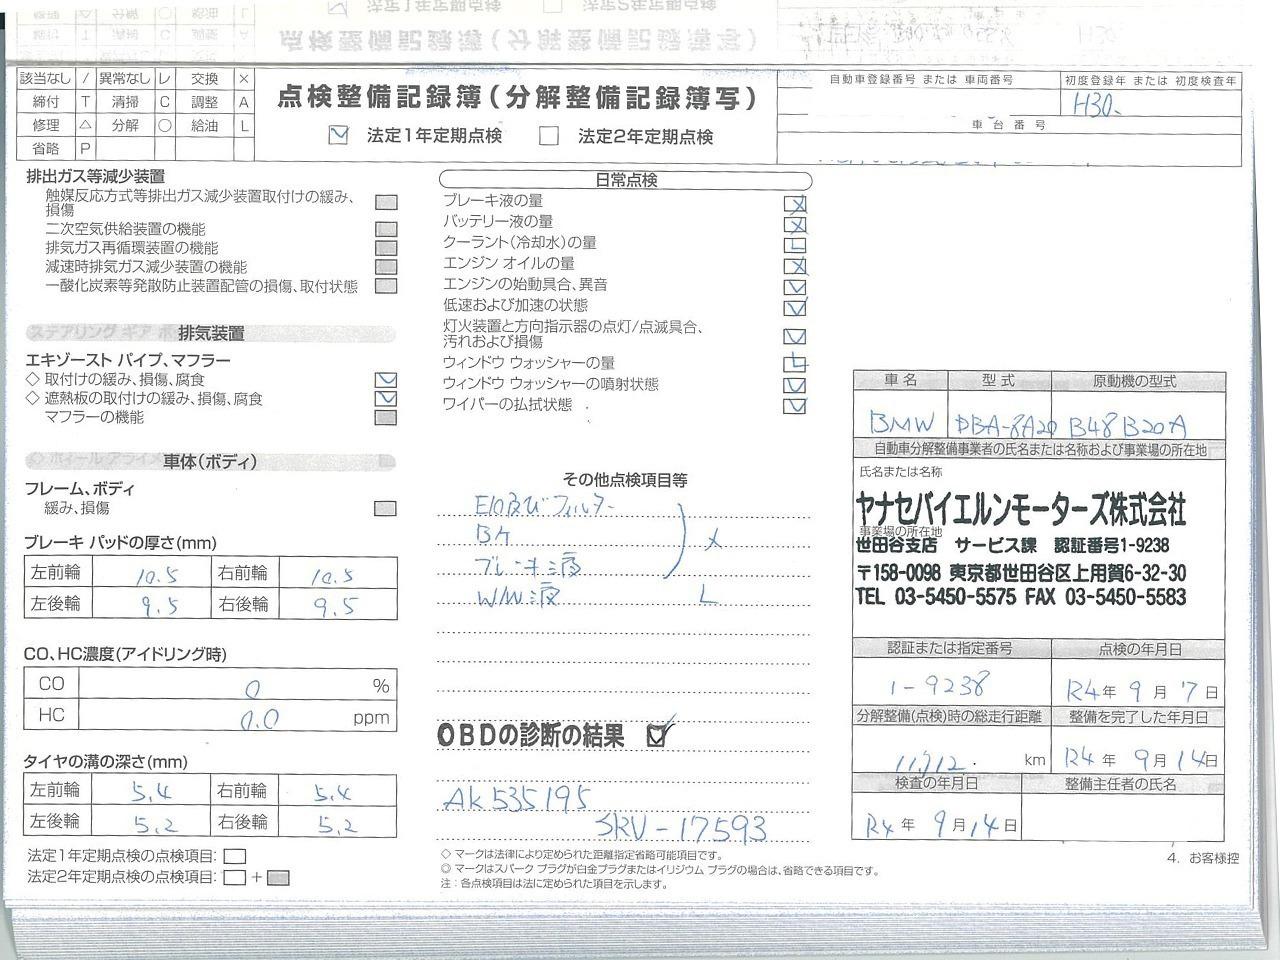 該当なし / 異常なし レ 交換 ×
締付 T 清掃 C 調整 A
修理 △ 分解 ○ 給油 L
省略 P
点検整備記録簿(分解整備記録簿写)
法定1年定期点検 法定2年定期点検
自動車登録番号 または 車両番号
初度登録年 または 初度検査年
H30.
車台番号
排出ガス等減少装置
触媒反応方式等排出ガス減少装置取付けの緩み、
損傷
二次空気供給装置の機能
排気ガス再循環装置の機能
減速時排気ガス減少装置の機能
一酸化炭素等発散防止装置配管の損傷、取付状態
排気装置
エキゾースト パイプ、マフラー
◇ 取付けの緩み、損傷、腐食
◇ 遮熱板の取付けの緩み、損傷、腐食
マフラーの機能
車体(ボディ)
フレーム、ボディ
緩み、損傷
ブレーキ パッドの厚さ(mm)
左前輪 10.5 右前輪 10.5
左後輪 9.5 右後輪 9.5
CO、HC濃度(アイドリング時)
CO 0 %
HC 0.0 ppm
タイヤの溝の深さ(mm)
左前輪 5.4 右前輪 5.4
左後輪 5.2 右後輪 5.2
法定1年定期点検の点検項目:
法定2年定期点検の点検項目: +
日常点検
ブレーキ液の量 ×
バッテリー液の量 ×
クーラント(冷却水)の量 L
エンジン オイルの量 ×
エンジンの始動具合、異音 レ
低速および加速の状態 レ
灯火装置と方向指示器の点灯/点滅具合、
汚れおよび損傷 レ
ウィンドウ ウォッシャーの量 L
ウィンドウ ウォッシャーの噴射状態 レ
ワイパーの払拭状態 レ
その他点検項目等
E/O及びフィルター
ブレーキ液 ×
W/W液 L
OBDの診断の結果
AK535195
SRV-17593
◇ マークは法律により定められた距離指定省略可能項目です。
◎ マークはスパーク プラグが白金プラグまたはイリジウム プラグの場合は、省略できる項目です。
注:各点検項目は法に定められた項目を示します。
車名 型式 原動機の型式
BMW DBA-8A20 B48B20A
自動車分解整備事業者の氏名または名称および事業場の所在地
氏名または名称
ヤナセバイエルンモーターズ株式会社
事業場の所在地
世田谷支店 サービス課 認証番号1-9238
〒158-0098 東京都世田谷区上用賀6-32-30
TEL 03-5450-5575 FAX 03-5450-5583
認証または指定番号 点検の年月日
1-9238 R4年 9月 7日
分解整備(点検)時の総走行距離 整備を完了した年月日
11,712. km R4年 9月 14日
検査の年月日 整備主任者の氏名
R4年 9月 14日
4. お客様控